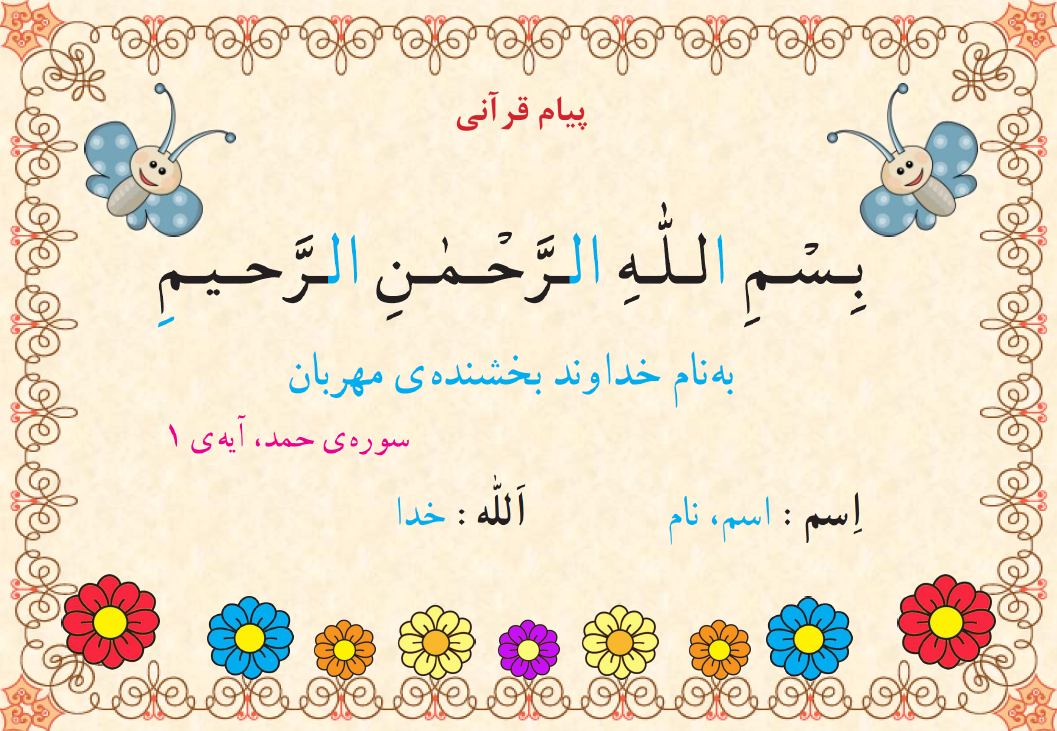 پیام قرآنی
بِـسْـمِ الـلّٰـهِ الـرَّحْـمٰـنِ الـرَّحـیـمِ
به‌نام خداوند بخشنده‌ی مهربان
سوره‌ی حمد، آیه‌ی ۱
اِسم : اسم، نام
اَللّٰه : خدا